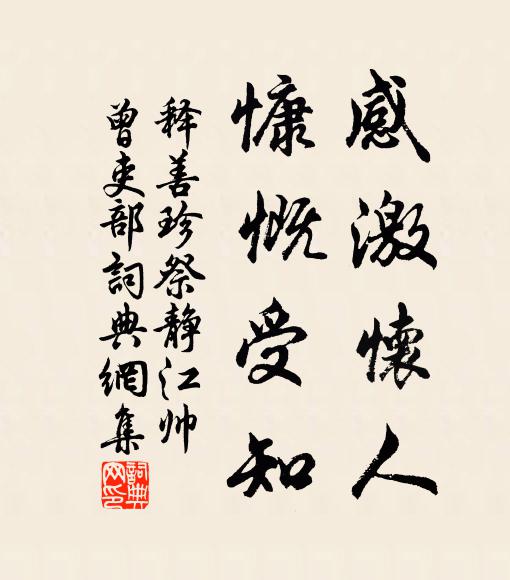 感激懷人
慷慨受知
释善珍祭静江帅
曾吏部詞典網集
詞典网印